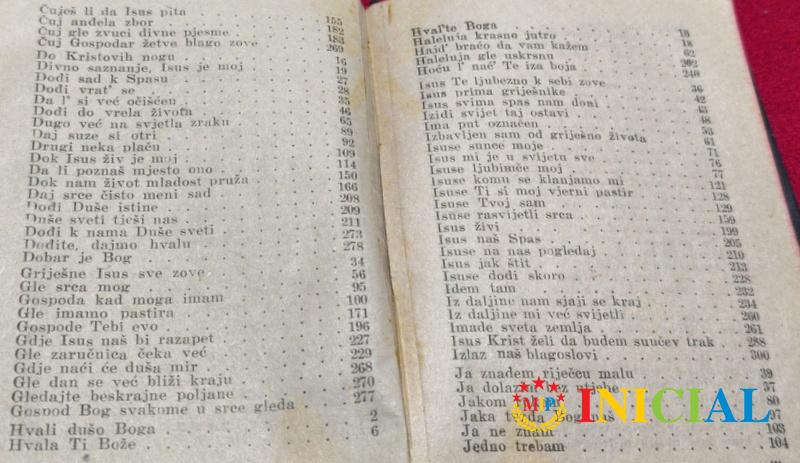 Čuješ li da Isus pita 155
Čuj anđela zbor 182
Čuj gle zvuci divne pjesme 183
Čuj Gospodar žetve blago zove 269
Do Kristovih nogu 16
Divno saznanje, Isus je moj 19
Dođi sad k Spasu 27
Dođi vrat' se 28
Da l' si već očišćen 35
Dođi do vrela života 46
Dugo već na svjetla zraku 65
Daj suze si otri 89
Drugi neka plaču 92
Dok Isus živ je moj 109
Da li poznaš mjesto ono 114
Dok nam život mladost pruža 150
Daj srce čisto meni sad 166
Dođi Duše istine 208
Duše sveti tješi nas 209
Dođi k nama Duše sveti 211
Dođite, dajmo hvalu 273
Dobar je Bog 278
Griješne Isus sve zove 34
Gle srca mog 56
Gospoda kad moga imam 95
Gle imamo pastira 100
Gospode Tebi evo 171
Gdje Isus naš bi razapet 196
Gle zaručnica čeka već 227
Gdje naći će duša mir 229
Gle dan se već bliži kraju 268
Gledajte beskrajne poljane 270
Gospod Bog svakome u srce gleda 277
Hvali dušo Boga 2
Hvala Ti Bože 6
Hval'te Boga 10
Haleluja krasno jutro 18
Hajd' braćo da vam kažem 62
Haleluja gle uskrsnu 202
Hoću l' nać' Te iza boja 240
Isus Te ljubezno k sebi zove 36
Isus prima griješnike 42
Isus svima spas nam doni 43
Izidi svijet taj ostavi 48
Ima put označen 53
Izbavljen sam od griješno života 61
Isuse sunce moje 71
Isus mi je u svijetu sve 76
Isuse ljubimče moj 77
Isuse komu se klanjamo mi 121
Isuse Ti si moj vjerni pastir 128
Isuse Tvoj sam 129
Isuse rasvijetli srca 159
Isus živi 199
Isus naš Spas 205
Isuse na nas pogledaj 210
Isus jak štit 213
Isuse dođi skoro 228
Idem tam 232
Iz daljine nam sjaji se kraj 234
Iz daljine mi već svijetli 260
Imade sveta zemlja 261
Isus Krist želi da budem sunčev trak 288
Izlaz naš blagoslovi 300
Ja znadem riječcu malu 39
Ja dolazim bez utjehe 57
Jakom 80
Jaka tvrđa Bog naš 97
Ja ne znam 103
Jedno trebam 104
MP INICIAL